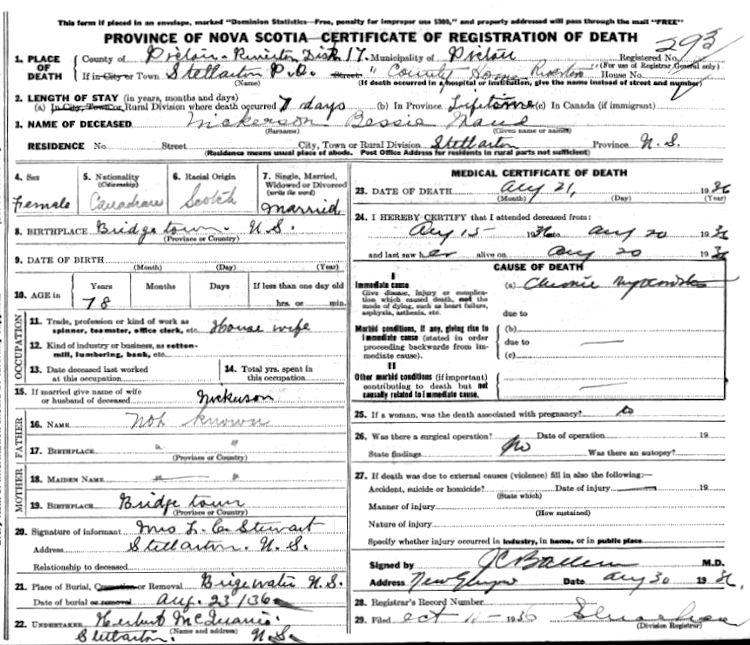 This form if placed in an envelope, marked "Dominion Statistics—Free, penalty for improper use $300," and properly addressed will pass through the mail "FREE"
PROVINCE OF NOVA SCOTIA—CERTIFICATE OF REGISTRATION OF DEATH
293
1. PLACE OF DEATH
County of Pictou - Riverton Dist 17. Municipality of Pictou Registered No.
(For use of Registrar General only)
If in City or Town Stellarton P.O. Street " County Home Riverton " House No.
(Name) (If death occurred in a hospital or institution, give the name instead of street and number)
2. LENGTH OF STAY (in years, months and days)
(a) In City, Town or Rural Division where death occurred 7 days (b) In Province Lifetime (c) In Canada (if immigrant)
3. NAME OF DECEASED Nickerson Bessie Maud
(Surname) (Given name or names)
RESIDENCE No. Street City, Town or Rural Division Stellarton Province N.S.
(Residence means usual place of abode. Post Office Address for residents in rural parts not sufficient)
4. Sex
Female
5. Nationality (Citizenship)
Canadian
6. Racial Origin
Scotch
7. Single, Married, Widowed or Divorced (write the word)
Married
8. BIRTHPLACE Bridgetown. N.S.
(Province or Country)
9. DATE OF BIRTH
(Month) (Day) (Year)
10. AGE in Years Months Days If less than one day old
78 hrs. or min.
OCCUPATION
11. Trade, profession or kind of work as spinner, teamster, office clerk, etc. House wife
12. Kind of industry or business, as cotton-mill, lumbering, bank, etc.
13. Date deceased last worked at this occupation
14. Total yrs. spent in this occupation
15. If married give name of wife or husband of deceased Nickerson
FATHER
16. NAME Not known
17. BIRTHPLACE " "
(Province or Country)
MOTHER
18. MAIDEN NAME
19. BIRTHPLACE Bridgetown
(Province or Country)
20. Signature of informant Mrs L. C. Stewart
Address Stellarton. N.S.
Relationship to deceased
21. Place of Burial, Cremation or Removal N.S.
Date of burial or removal Aug. 23/36
22. UNDERTAKER Herbert McQuarrie.
(Name and address)
Stellarton. N.S.
MEDICAL CERTIFICATE OF DEATH
23. DATE OF DEATH Aug 21, 1936
(Month) (Day) (Year)
24. I HEREBY CERTIFY that I attended deceased from:
Aug 15 1936 to Aug 20 1936
and last saw her alive on Aug 20 1936
CAUSE OF DEATH
I
Immediate cause
Give disease, injury or complication which caused death, not the mode of dying, such as heart failure, asphyxia, asthenia, etc.
(a) Chronic
due to
Morbid conditions, if any, giving rise to immediate cause (stated in order proceeding backwards from immediate cause).
(b)
due to —
(c)
II
Other morbid conditions (if important) contributing to death but not causally related to immediate cause.
25. If a woman, was the death associated with pregnancy?
26. Was there a surgical operation? No Date of operation 19
State findings Was there an autopsy?
27. If death was due to external causes (violence) fill in also the following:—
Accident, suicide or homicide? Date of injury 19
(State which)
Manner of injury
(How sustained)
Nature of injury
Specify whether injury occurred in industry, in home, or in public place
Signed by M.D.
Address New Glasgow Date Aug 30 1936
28. Registrar's Record Number
29. Filed Oct 1936
(Division Registrar)